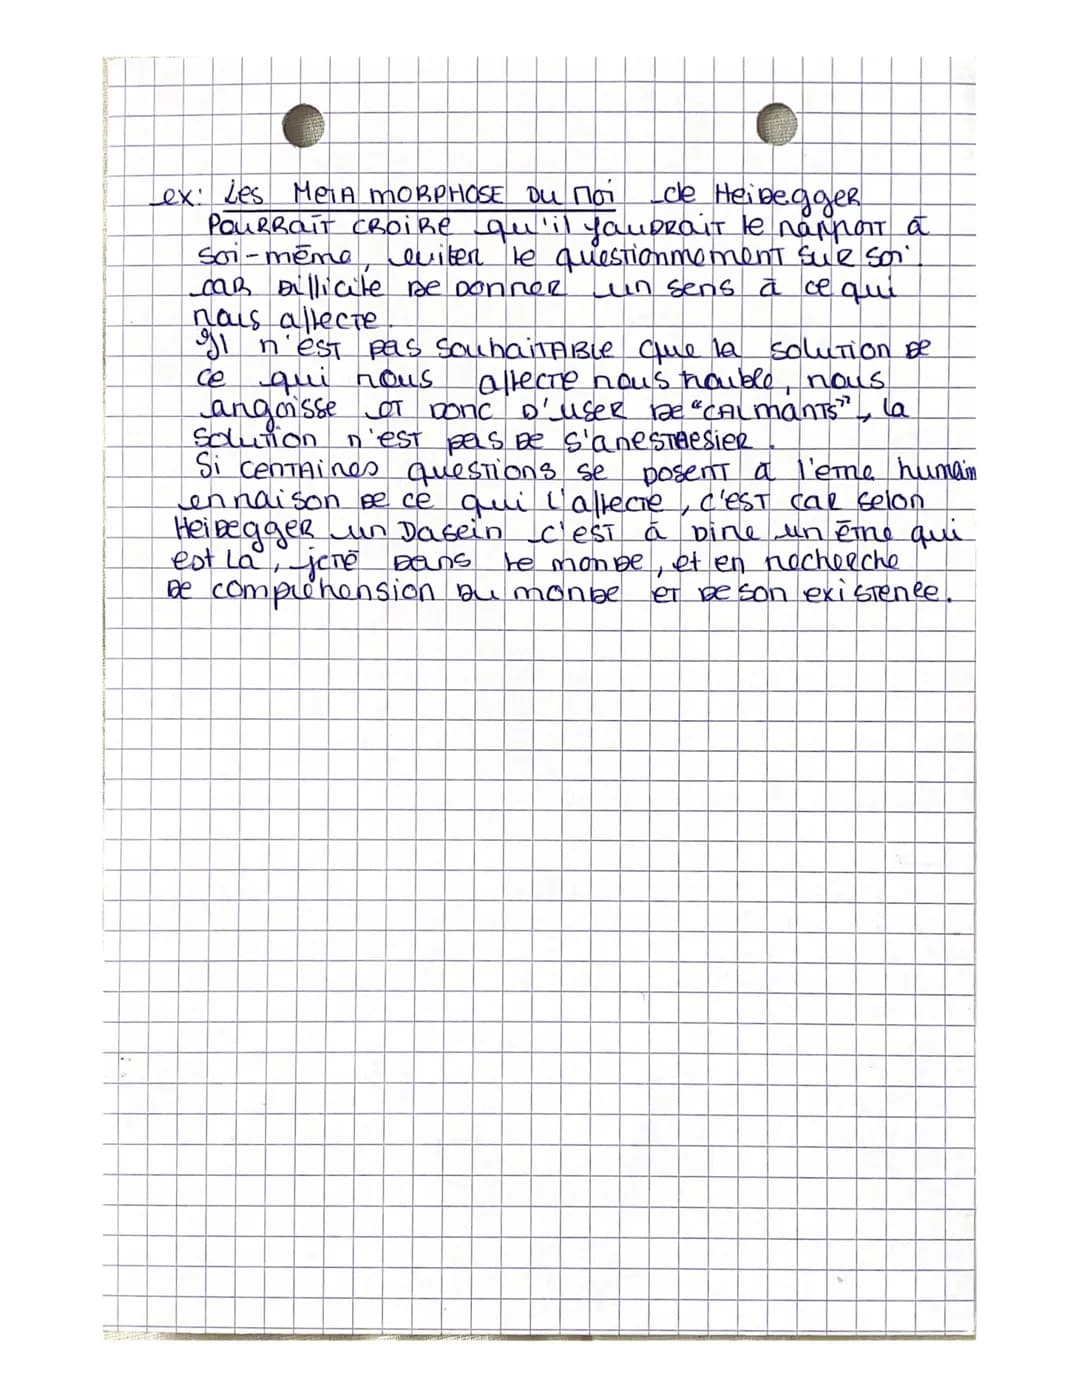 ex: Les METAMORPHOSE DU Moi de Heidegger
POURRAIT CROIRE qu'il faudrait le rapport à
soi-même, éviter le questionnement sur soi
car difficile de donner un sens à ce qui
nous affecte.
Il n'est pas souhaitable que la solution de
ce qui nous affecte nous trouble, nous
angoisse et donc d'user de "CALMANTS", la
solution n'est pas de s'anesthesier.
Si certaines questions se posent à l'etre humain
en raison de ce qui l'affecte, c'est car selon
Heidegger un Dasein c'est à dire un être qui
est là, jeté dans le monde, et en recherche
de compréhension du monde et de son existence.